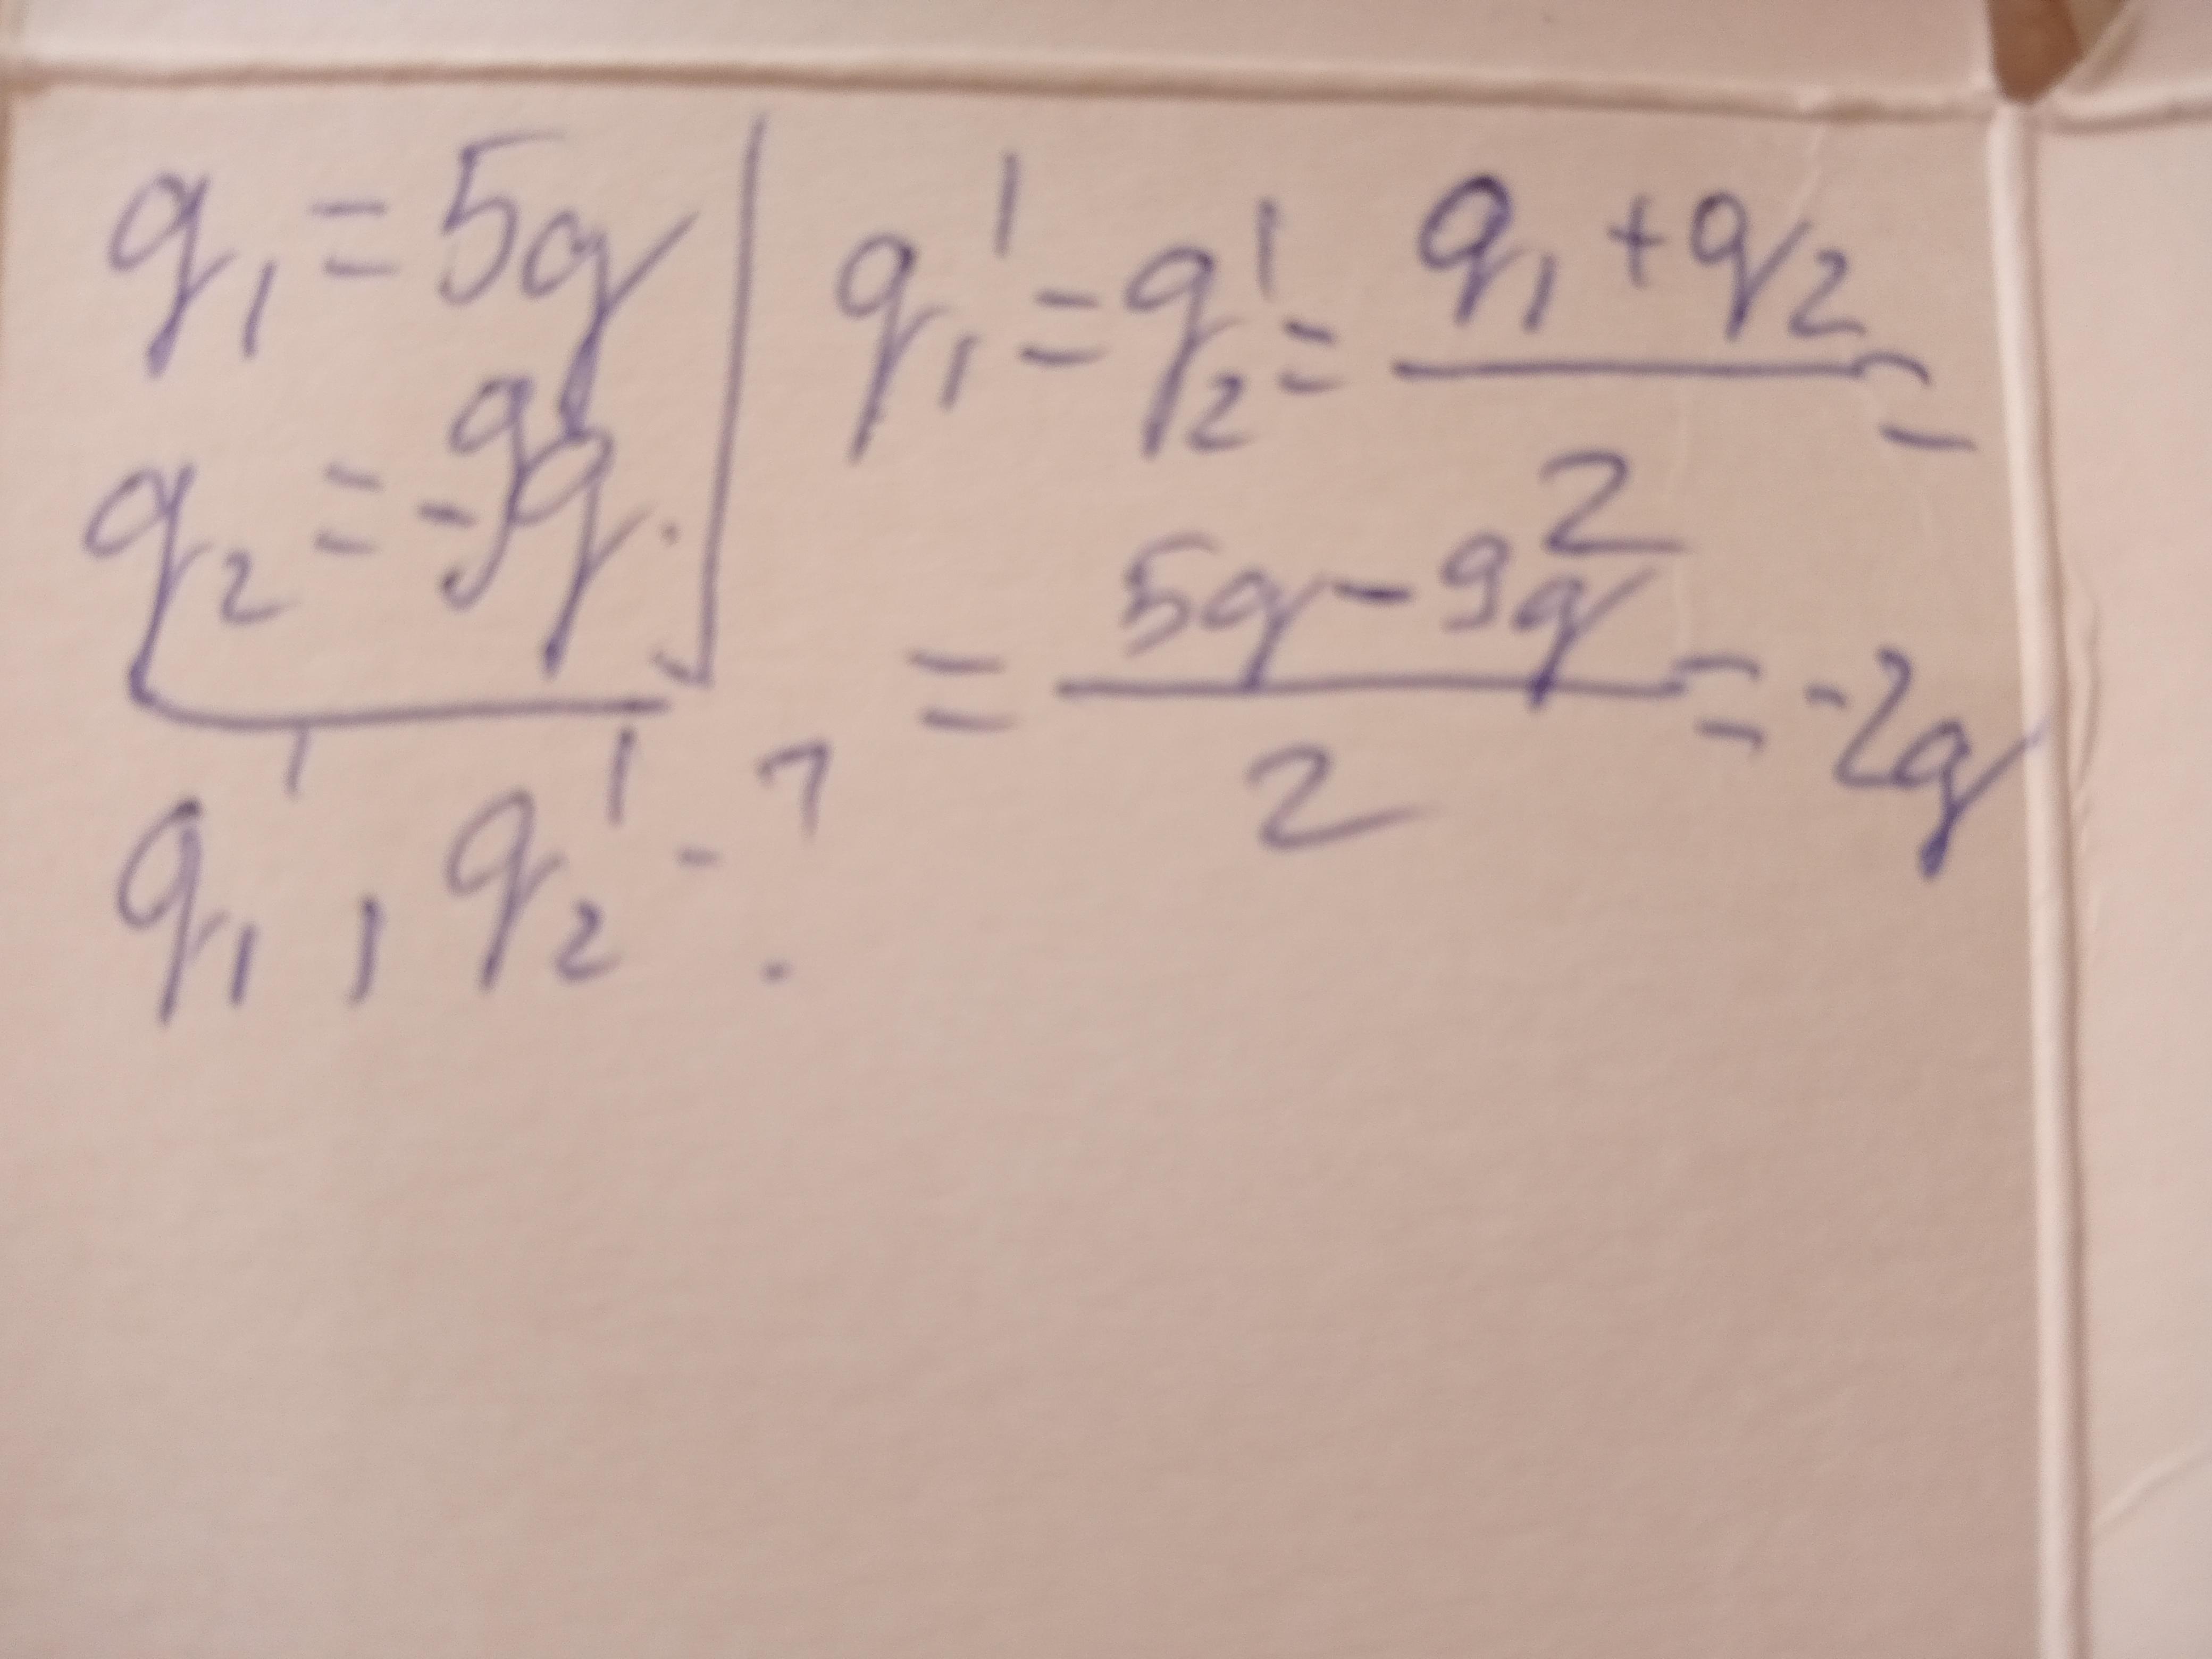 q₁ = 5q
q₂ = -9q.
q₁', q₂' - ?
q₁' = q₂' = (q₁ + q₂)/2 =
= (5q - 9q)/2 = -2q